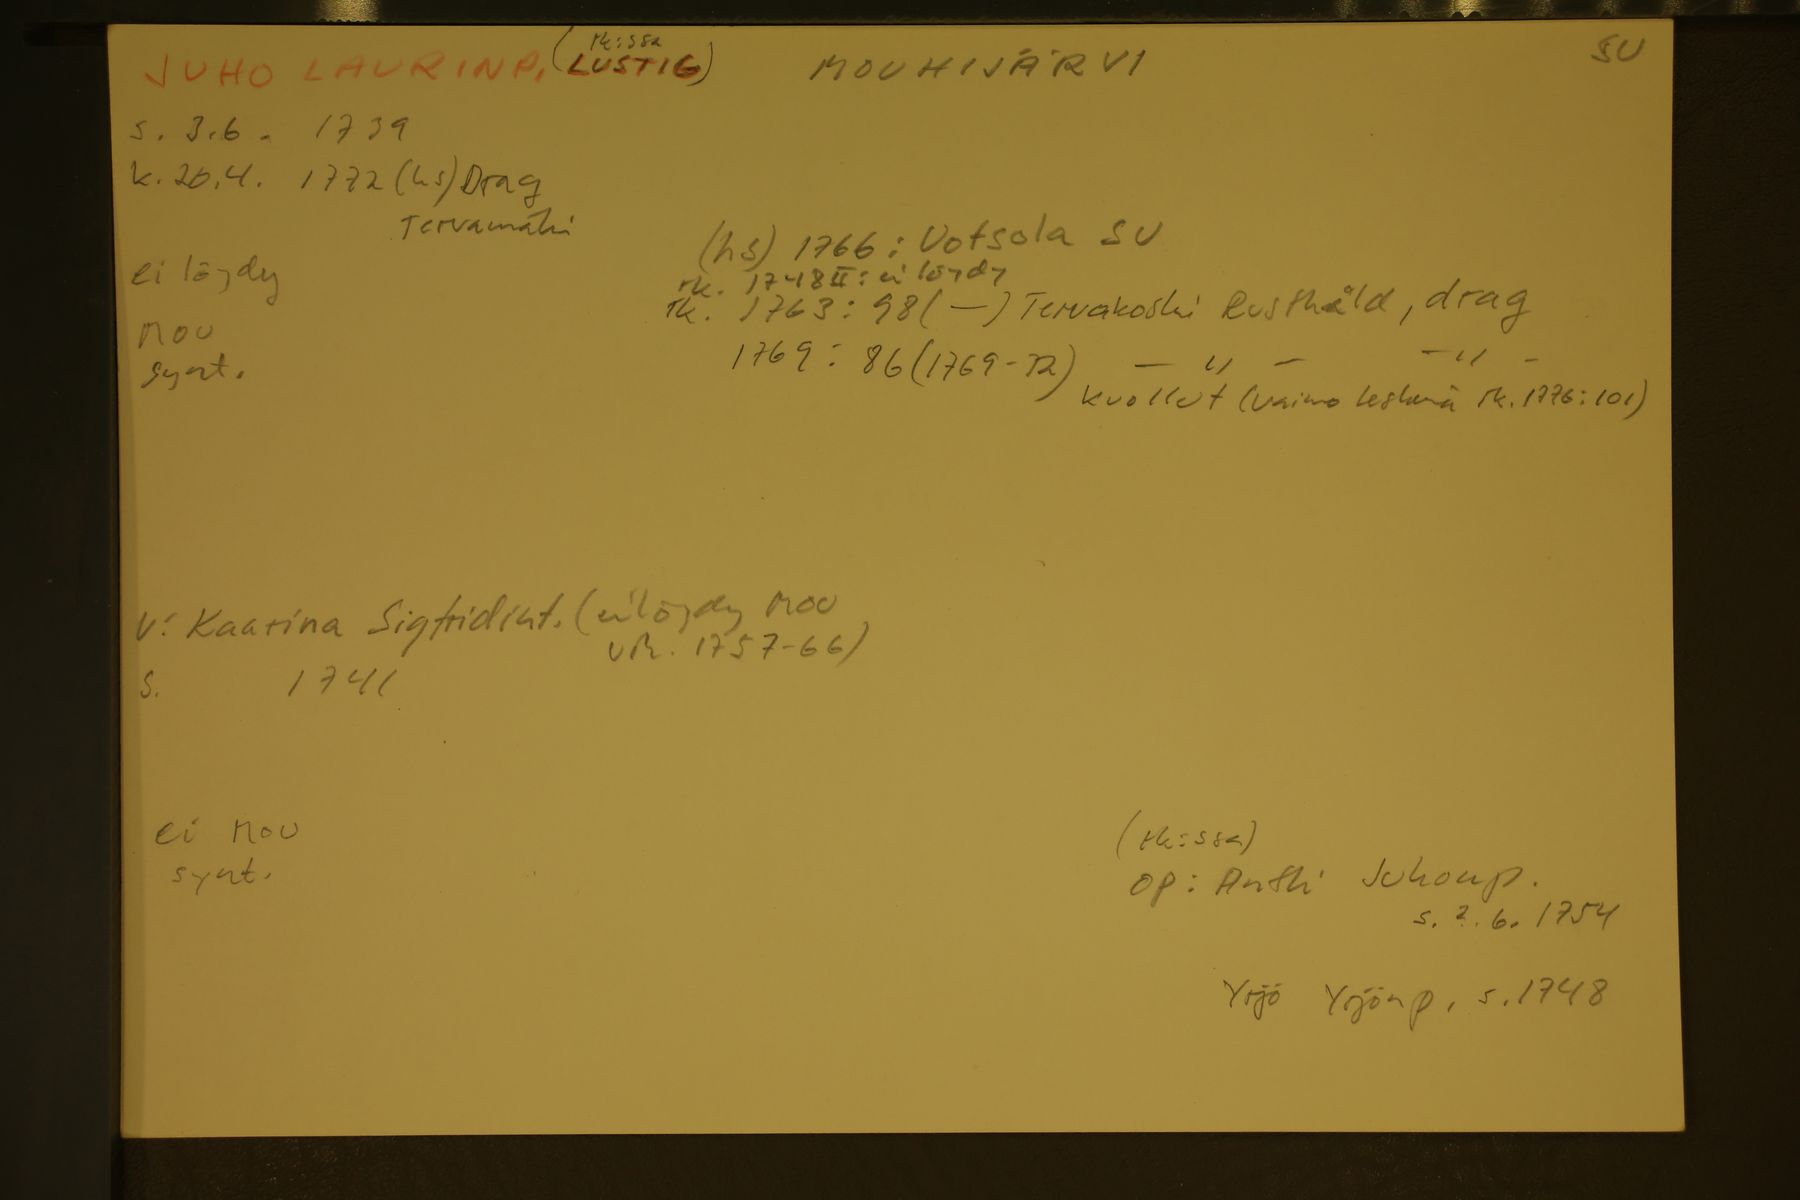 JUHO LAURINP. (rk:ssa LUSTIG) MOUHIJÄRVI SU
s. 3.6. 1739
k. 20.4. 1772 (hs) Drag
Tervamäki
(hs) 1766: Uotsola SU
ei löydy
rk. 1748 II: ei löydy
rk. 1763: 98 (—) Tervakoski Rusthåld, drag
Mou
synt.
1769: 86 (1769-72) — " — — " —
kuollut (vaimo leskenä rk. 1776: 101)
V: Kaarina Sigfridint. (ei löydy Mou
vk. 1757-66)
s. 1741
ei Mou
synt.
(rk:ssa)
op: Antti Juhonp.
s. ?.6. 1754
Yrjö Yrjönp. s. 1748